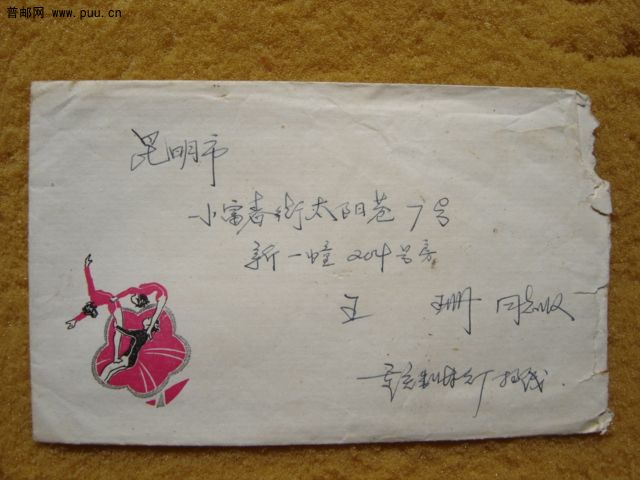 普邮网 www.puu.cn
昆明市
小富春街太阳巷7号
新一幢204号房
王 珊 同志收
重庆